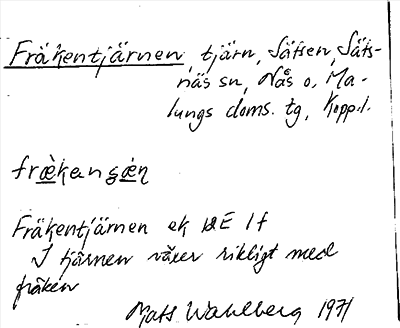 Fräkentjärnen, tjärn, Sätsen, Säts-
näs sn, Nås o. Ma-
lungs doms. tg, Kopp.l.
fræ̀kanʂæ̣ṇ
Fräkentjärnen ek 12E 1f
I tjärnen växer rikligt med
fräken
Mats Wahlberg 1971